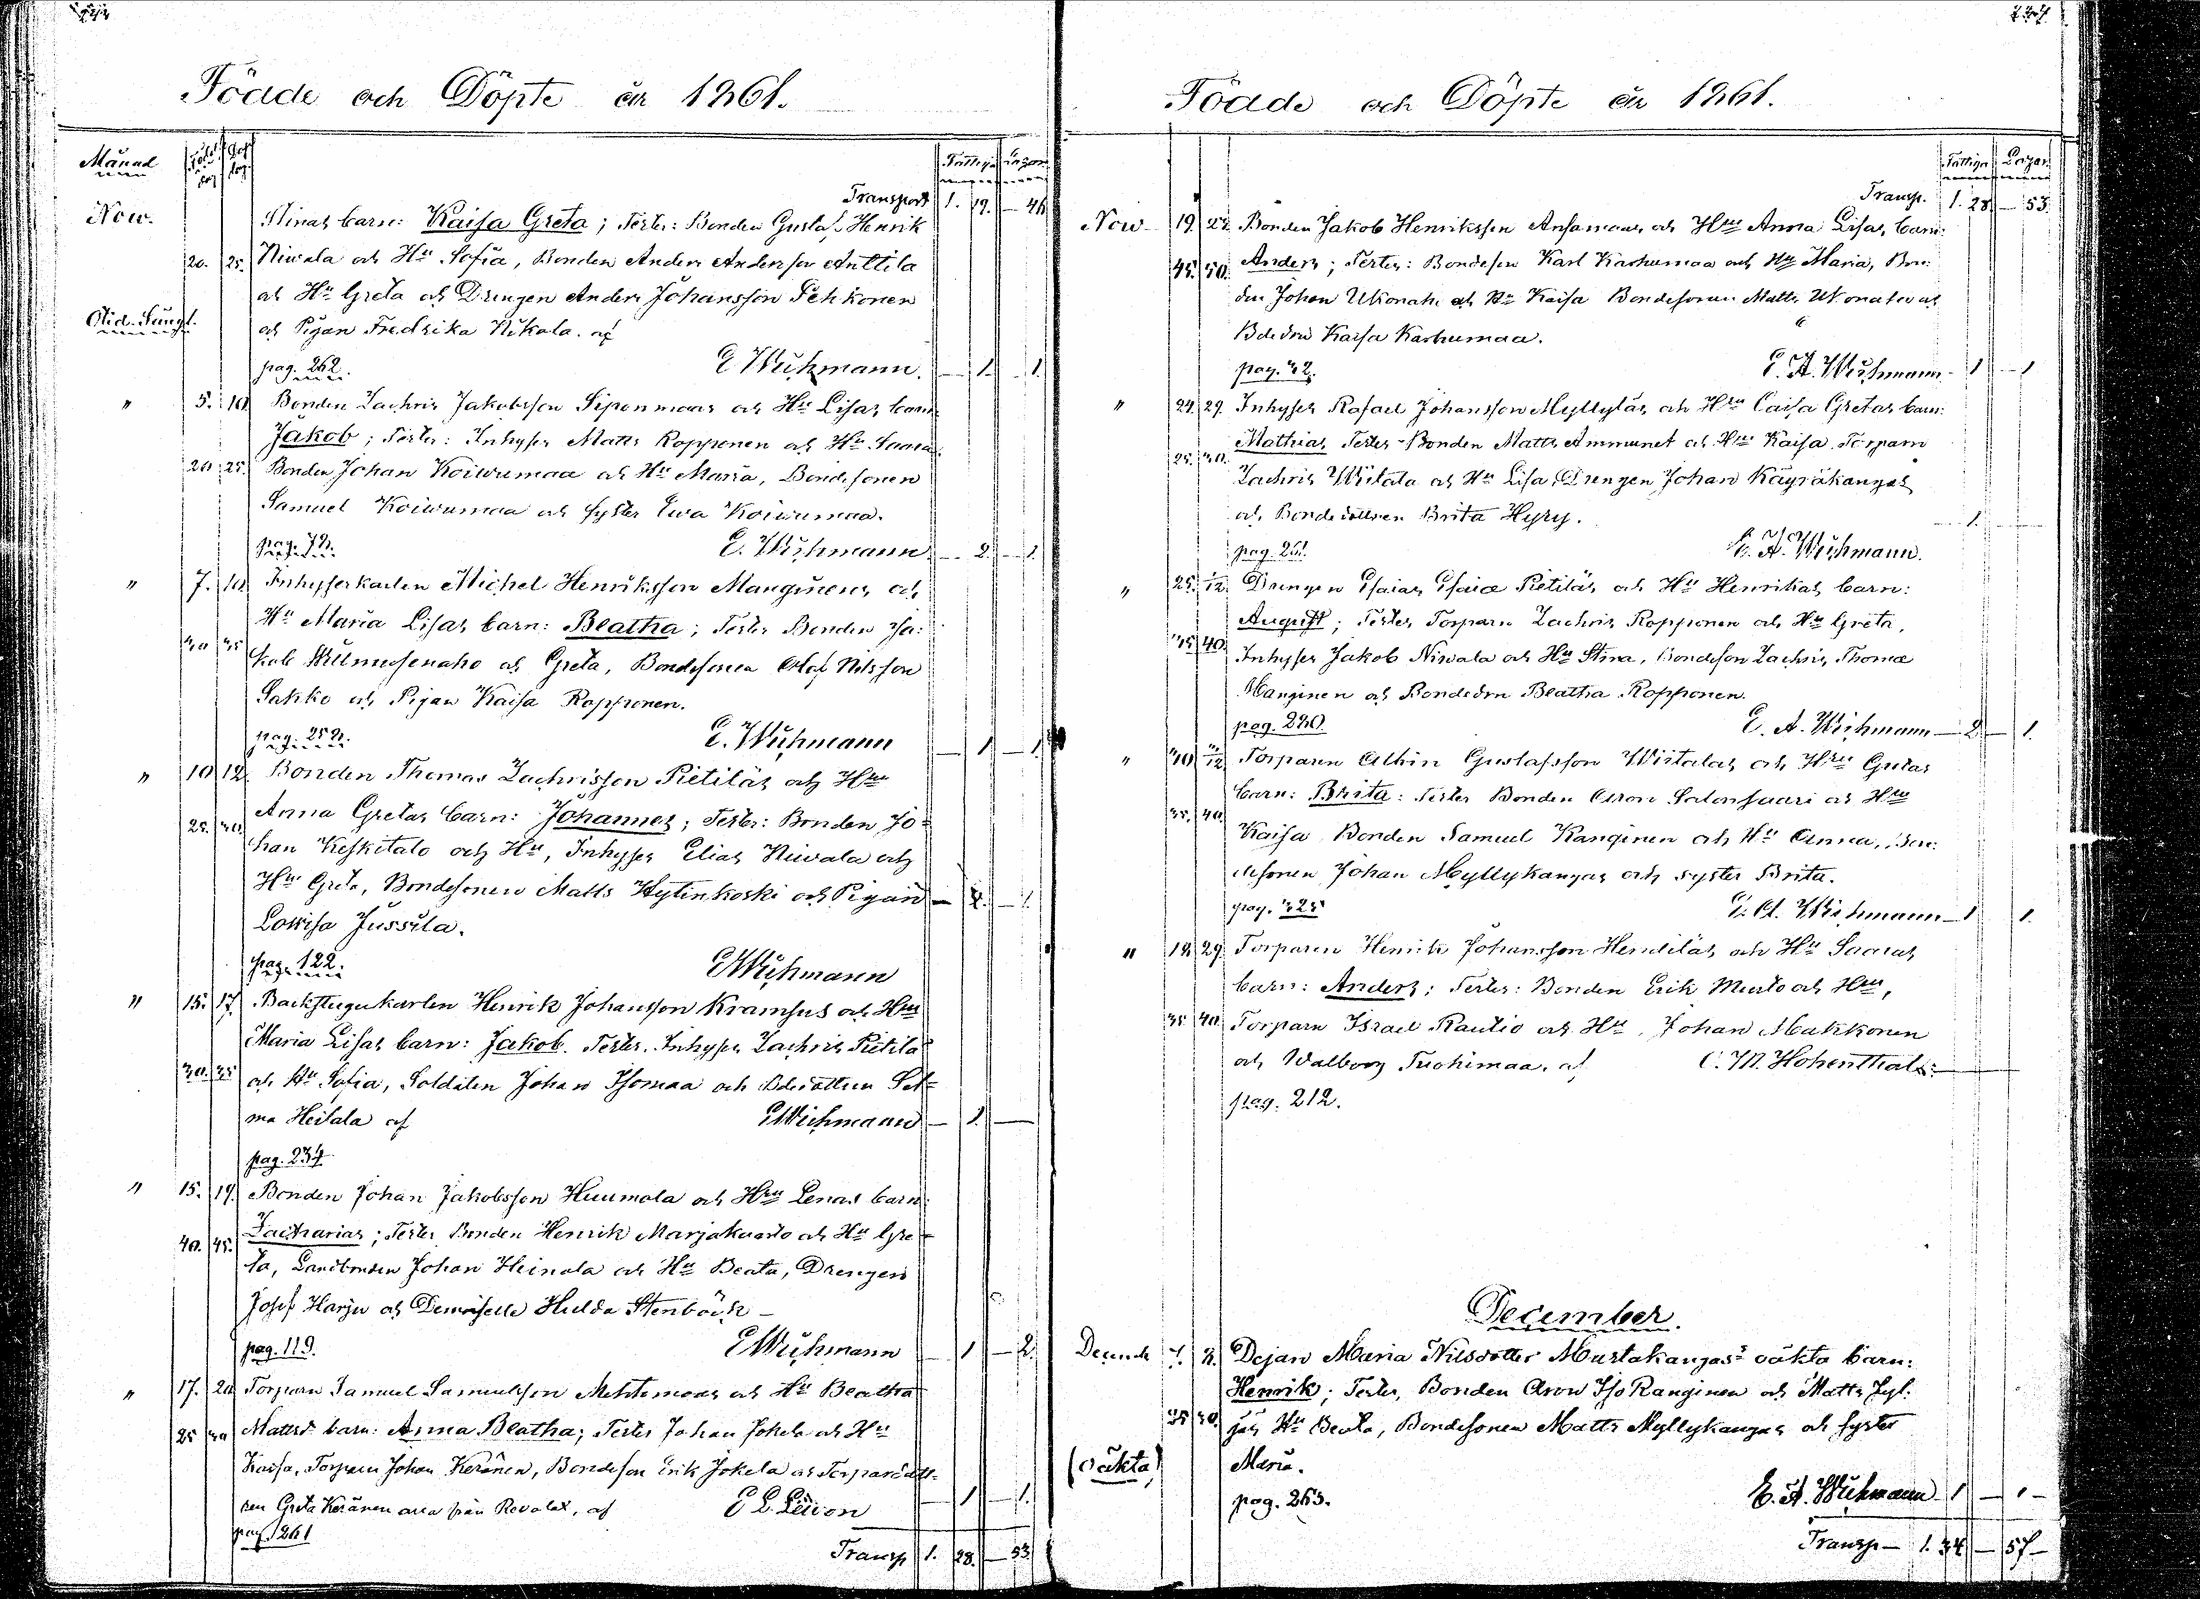 Födde och Döpte år 1861.
Månad
Fattiga
Transport 1. 19. — 46
Nov. Stinas barn: Kaisa Greta; Test:r: Bonden Gustaf Henrik
20. 25. Niwala och H:u Sofia, Bonden Anders Andersson Anttila
och H:u Greta och Drengen Anders Johansson Pehkonen
och Pigan Fredrika Nikola. af
pag. 262. E Wichmann. — 1. 1.
" 5. 10 Bonden Zachris Jakobsson Siponmaas och H:u Lisas barn:
Jakob; Test:r: Inhyses Matts Ropponen och H:u Saara
20 25. Bonden Johan Koivumaa och H:u Maria, Bondesonen
Samuel Koivumaa och syster Ewa Koivumaa.
pag. 72. E. Wichmann — 2. — 1.
" 7. 10 Inhyseskarlen Michel Henriksson Manginens och
H:u Maria Lisas barn: Beatha; Test:r Bonden Ja:
30 35 kob Wilmusenaho och Greta, Bondesonen Olof Nilsson
Sakko och Pigan Kaisa Ropponen.
pag. 252. E. Wichmann — 1 — 1.
" 10 12. Bonden Thomas Zachrisson Pietiläs och H:ru
Anna Gretas barn: Johannes; Test:r: Bonden Jo=
25. 30 han Keskitalo och H:u, Inhyses Elias Niwala och
H:u Greta, Bondesonen Matts Hytinkoski och Pigan — 2. — 1.
Lovisa Jussila.
pag. 122. EWichmann
" 15. 17. Backstugukarlen Henrik Johansson Kramsus och H:rus
Maria Lisas barn: Jakob. Test:r. Inhyses Zachris Pietilä
30. 35 och H:u Sofia, Soldaten Johan Isomaa och Bdedottren Sel=
ma Heitala af EWichmann — 1. —
pag. 234
" 15. 19. Bonden Johan Jakobsson Huumola och H:ru Lenas barn:
Zacharias; Test:r Bonden Henrik Marjakaarto och H:u Gre=
40. 45. ta, Landbonden Johan Heinola och H:u Beata, Drengen
Josef Harju och Demoiselle Hulda Stenbäck —
pag. 119. EWichmann — 1 — 2.
" 17. 20 Torparn Samuel Samuelsson Mehtomaas och H:u Beatha
25 30 Mattsd:r barn: Anna Beatha; Test:r Johan Jokela och H:u
Kaisa, Torparn Johan Keränen, Bondeson Erik Jokela och Torparedott=
ren Greta Keränen alla från Revolax, af — 1 — 1.
pag. 261
Transp 1. 28. — 53
Födde och Döpte år 1861.
Fattiga
Transp. 1. 28 — 53
Nov 19. 22. Bonden Jakob Henriksson Ansamaas och H:ru Anna Lisas barn:
45. 50. Anders; Test:r: Bondeson Karl Karhumaa och H:u Maria, Bon:
den Johan Ukonaho och H:u Kaisa Bondesonen Matts Ukonaho och
Bdedrn Kaisa Karhumaa.
pag. 32. E. A. Wichmann — 1 — 1
" 24. 29. Inhyses Rafael Johansson Myllyläs och H:ru Caisa Gretas barn:
Mathias, Test:r Bonden Matts Ammunet och H:ru Kaisa Torparn
25. 30. Zachris Wiitala och H:u Lisa, Drengen Johan Käyräkangas
och Bondedottren Brita Hyry. — 1.
pag. 261. E. A. Wichmann.
" 25. 1/12. Drengen Esaias Esaiæ Pietiläs och H:u Henrikas barn:
August; Test:r, Torparn Zachris Ropponen och H:u Greta,
35. 40. Inhyses Jakob Niwala och H:u Stina, Bondeson Zachris Thomæ
Manginen och Bondedrn Beatha Ropponen.
pag. 220. E. A. Wichmann — 2 — 1.
" 30 Torparen Albin Gustafsson Wiitalas och H:ru Gretas
barn: Brita: Test:r Bonden Aron Salonsaari och H:ru
35. 40. Kaisa, Bonden Samuel Kanginen och H:u Anna, Bon:
desonen Johan Myllykangas och syster Brita.
pag. 325 E. A. Wichmann — 1 1.
" 18. 29. Torparen Henrik Johansson Hendiläs och H:u Saaras
barn: Anders; Test:r: Bonden Erik Mursto och H:ru,
35 40. Torparn Israel Rautio och H:u, Johan Makkonen
och Walborg Tuohimaa. af C. M. Hohenthal
pag. 212.
December.
Decemb 1. 8. Dejan Maria Nilsdotter Mustakangas's oäkta barn:
Henrik; Test:r, Bonden Aron Iso Kanginen och Matts Jyl:
25 30. jäs H:u Beata, Bondesonen Matts Myllykangas och syster
(oäkta) Maria.
pag. 263. E. A. Wichmann 1 — " —
Transp — 1. 34 — 57 —